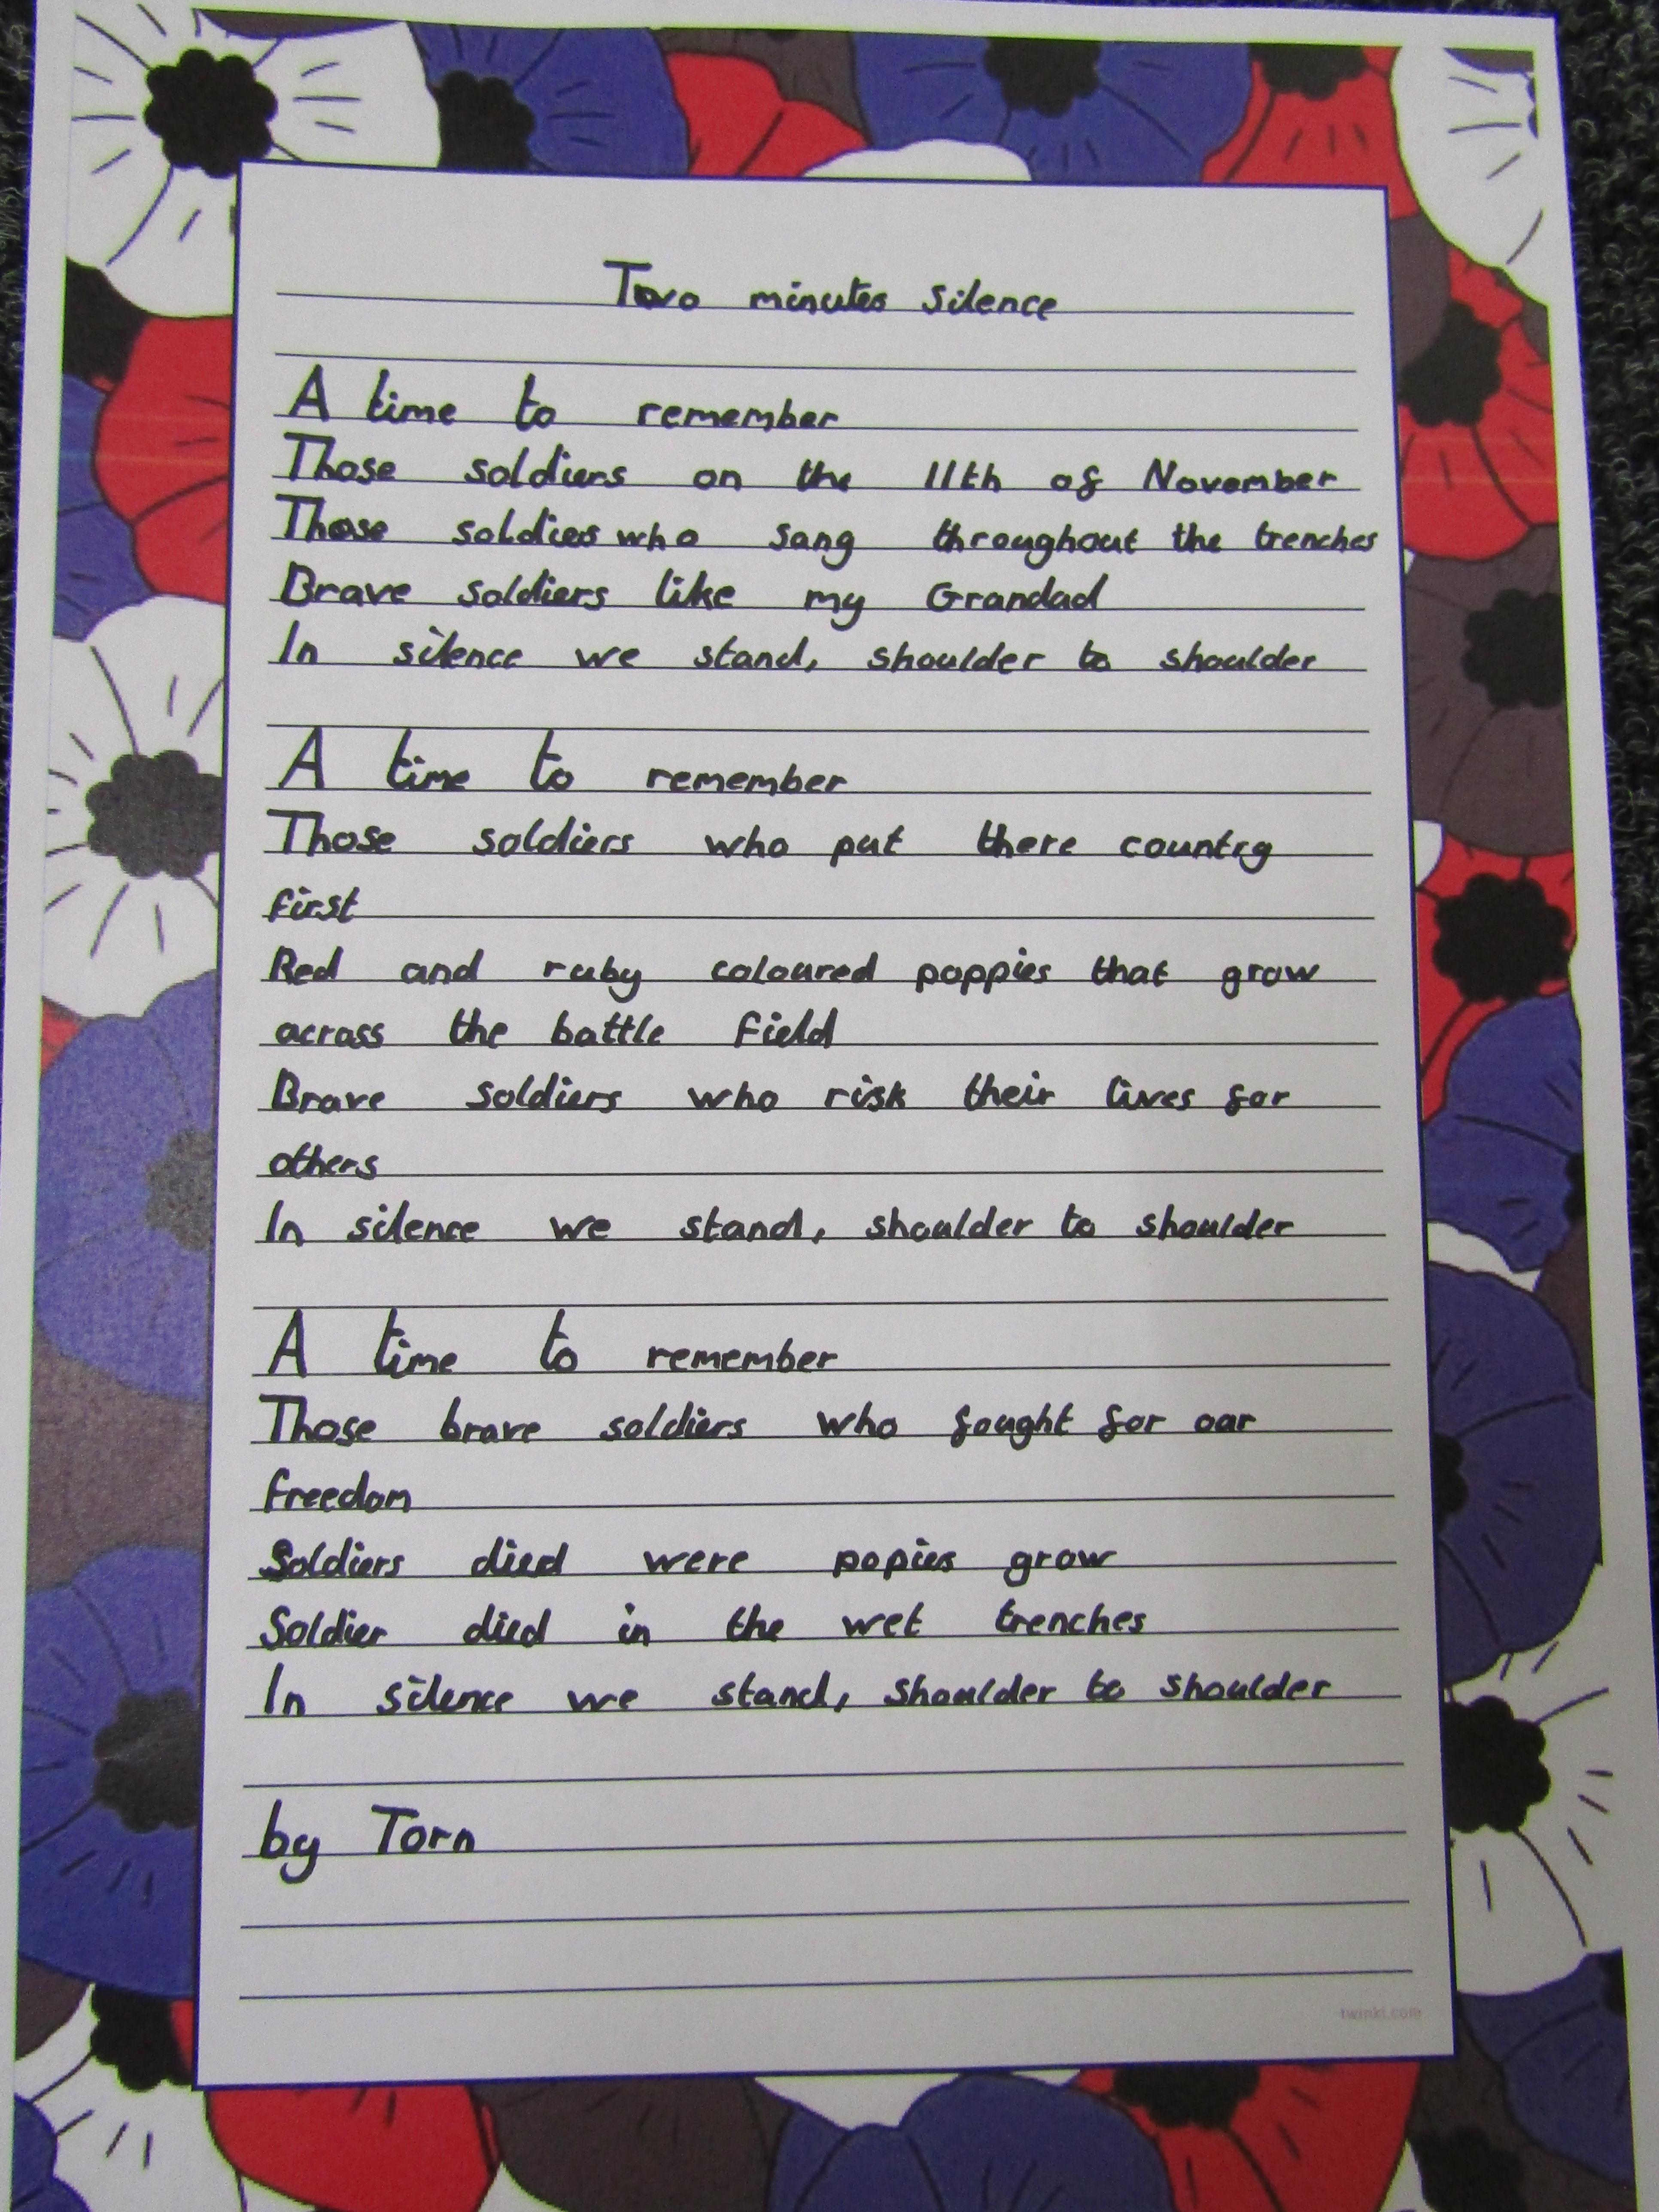 Two minutes silence
A time to remember
Those soldiers on the 11th of November
Those soldiers who sang throughout the trenches
Brave soldiers like my Grandad
In silence we stand, shoulder to shoulder
A time to remember
Those soldiers who put there country
first
Red and ruby coloured poppies that grow
across the battle field
Brave soldiers who risk their lives for
others
In silence we stand, shoulder to shoulder
A time to remember
Those brave soldiers who fought for our
freedom
Soldiers died were popies grow
Soldier died in the wet trenches
In silence we stand, shoulder to shoulder
by Torn
twinkl.com